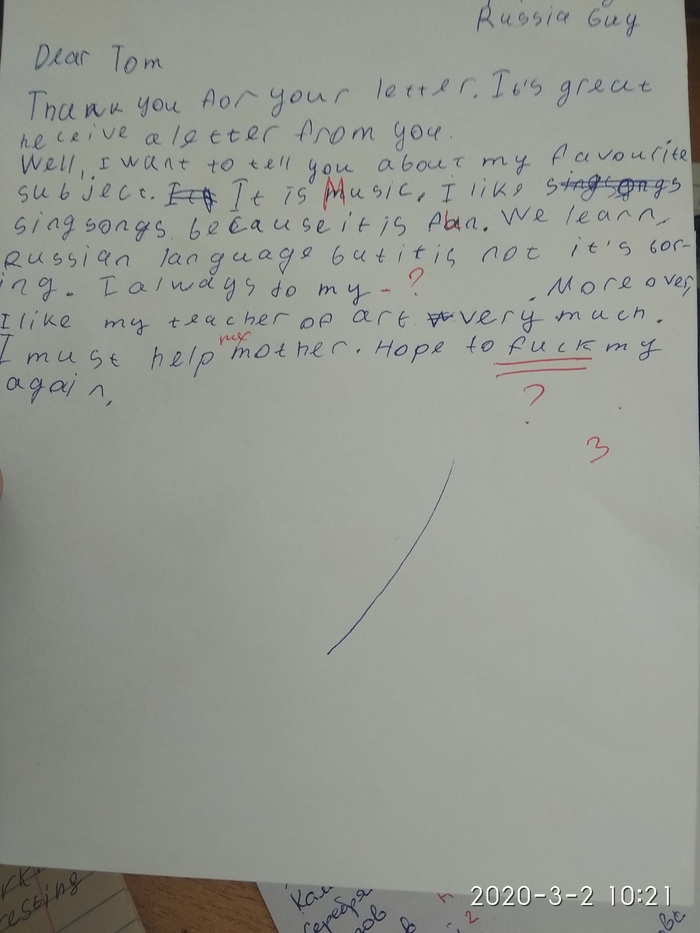 Russia Guy
Dear Tom
Thank you for your letter. It's great
receive a letter from you.
Well, I want to tell you about my favourite
subject. It is Music. I like
sing songs because it is fun. We learn
Russian language but it is not it's bor-
ing. I always do my - ? . More over,
I like my teacher of art very much.
my
I must help mother. Hope to fuck my
again,
?
3
esting
2
2020-3-2 10:21